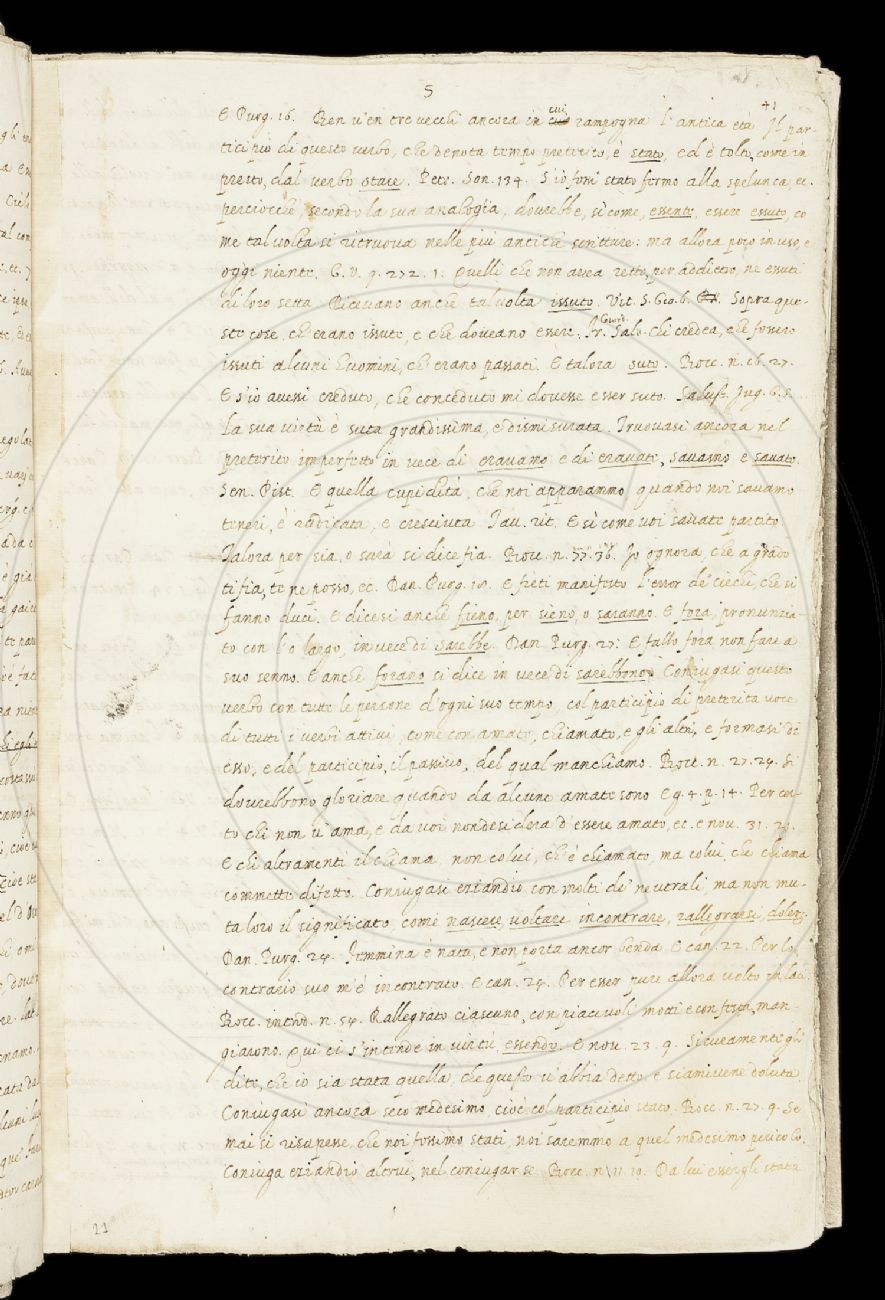 5
E Purg. 16. Ben v'en tre vecchi ancora in cui rampogna l'antica età +1 Il par-
ticipio di questo verbo, che denota tempo preterito, è stato, ed è tolto, come in
presto, dal verbo stare. Petr. Son. 134. S'io fossi stato fermo alla spelunca, ec.
perciocchè, secondo la sua analogia, dovrebbe, sì come, essente, essere essuto, co
me talvolta si ritruova nelle più antiche scritture: ma allora poco in uso, e
oggi niente. G. V. 9. 272. 1. Quelli che non avea retto, per addietro, ne essuti
di loro setta Dicevano anche talvolta issuto. Vit. S. Gio. b. Sopra que-
ste cose, ch'erano issute, e che doveano essere. Fr. Giord. Salv. chi credea, che fossero
issuti alcuni huomini, ch'erano passati. E talora suto. Bocc. n. 16. 27.
E s'io avessi creduto, che conceduto mi dovesse esser suto. Salust. Jug. G. S.
La sua virtù è suta grandissima, e dismisurata. Truovasi ancora nel
preterito imperfetto in vece di eravamo e di eravate, savamo e savate
Sen. Pist. E quella cupidità, che noi apparammo quando noi savamo
teneri, è radicata, e cresciuta Tav. rit. E sì come voi savate partito
Talora per sia, o sarà si dice fia. Bocc. n. 77. 36. Io ognora, che a grado
ti fia, te ne posso, ec. Dan. Purg. 18. E fieti manifesto l'error de' ciechi, che si
fanno duci. E dicesi anche fieno, per sieno, o saranno. E fora, pronunzia-
to con l'o largo, in vece di sarebbe. Dan Purg. 27: E fallo fora non fare a
suo senno. E anche forano si dice in vece di sarebbono. Coniugasi questo
verbo con tutte le persone d'ogni suo tempo, col participio di preterita voce
di tutti i verbi attivi, come con amato, chiamato, e gli altri, e formasi di
esso, e del participio, il passivo, del qual manchiamo. Bocc. n. 27. 24. Si
dovrebbono gloriare quando da alcune amate sono E g. 4. p. 14. Per cer-
to chi non v'ama, e da voi non desidera d'essere amato, ec. e nov. 31. 29.
E chi altramenti il chiama, non colui, ch'è chiamato, ma colui, che chiama
commette difetto. Coniugasi eziandio con molti de' neutrali, ma non mu-
ta loro il significato, come nascere, voltare incontrare, rallegrarsi, dolersi
Dan. Purg. 24. Femmina è nata, e non porta ancor benda E can. 22. Per lo
contrario suo m'è incontrato. E can. 24. Per esser pure allora volto in laci.
Bocc. introd. n. 54. Rallegrato ciascuno, con piacevoli motti e con festa, man-
giarono. Qui ci s'intende in virtù, essendo. E nov. 23. 9. Sicuramente gli
dite, che io sia stata quella, che questo v'abbia detto, e siamivene doluta.
Coniugasi ancora seco medesimo cioè col participio stato. Bocc. n. 27. 9. Se
mai si risapesse, che noi fossimo stati, noi saremmo a quel medesimo pericolo.
Coniuga eziandio altrui, nel coniugar se. Bocc. n. 11. 10. Da lui essergli stata
21